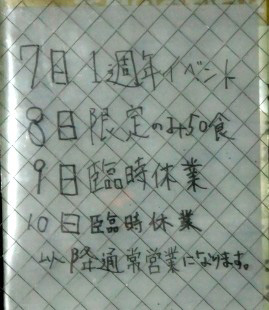 7日 1周年イベント
8日 限定のみ50食
9日 臨時休業
10日 臨時休業
以降通常営業になります。